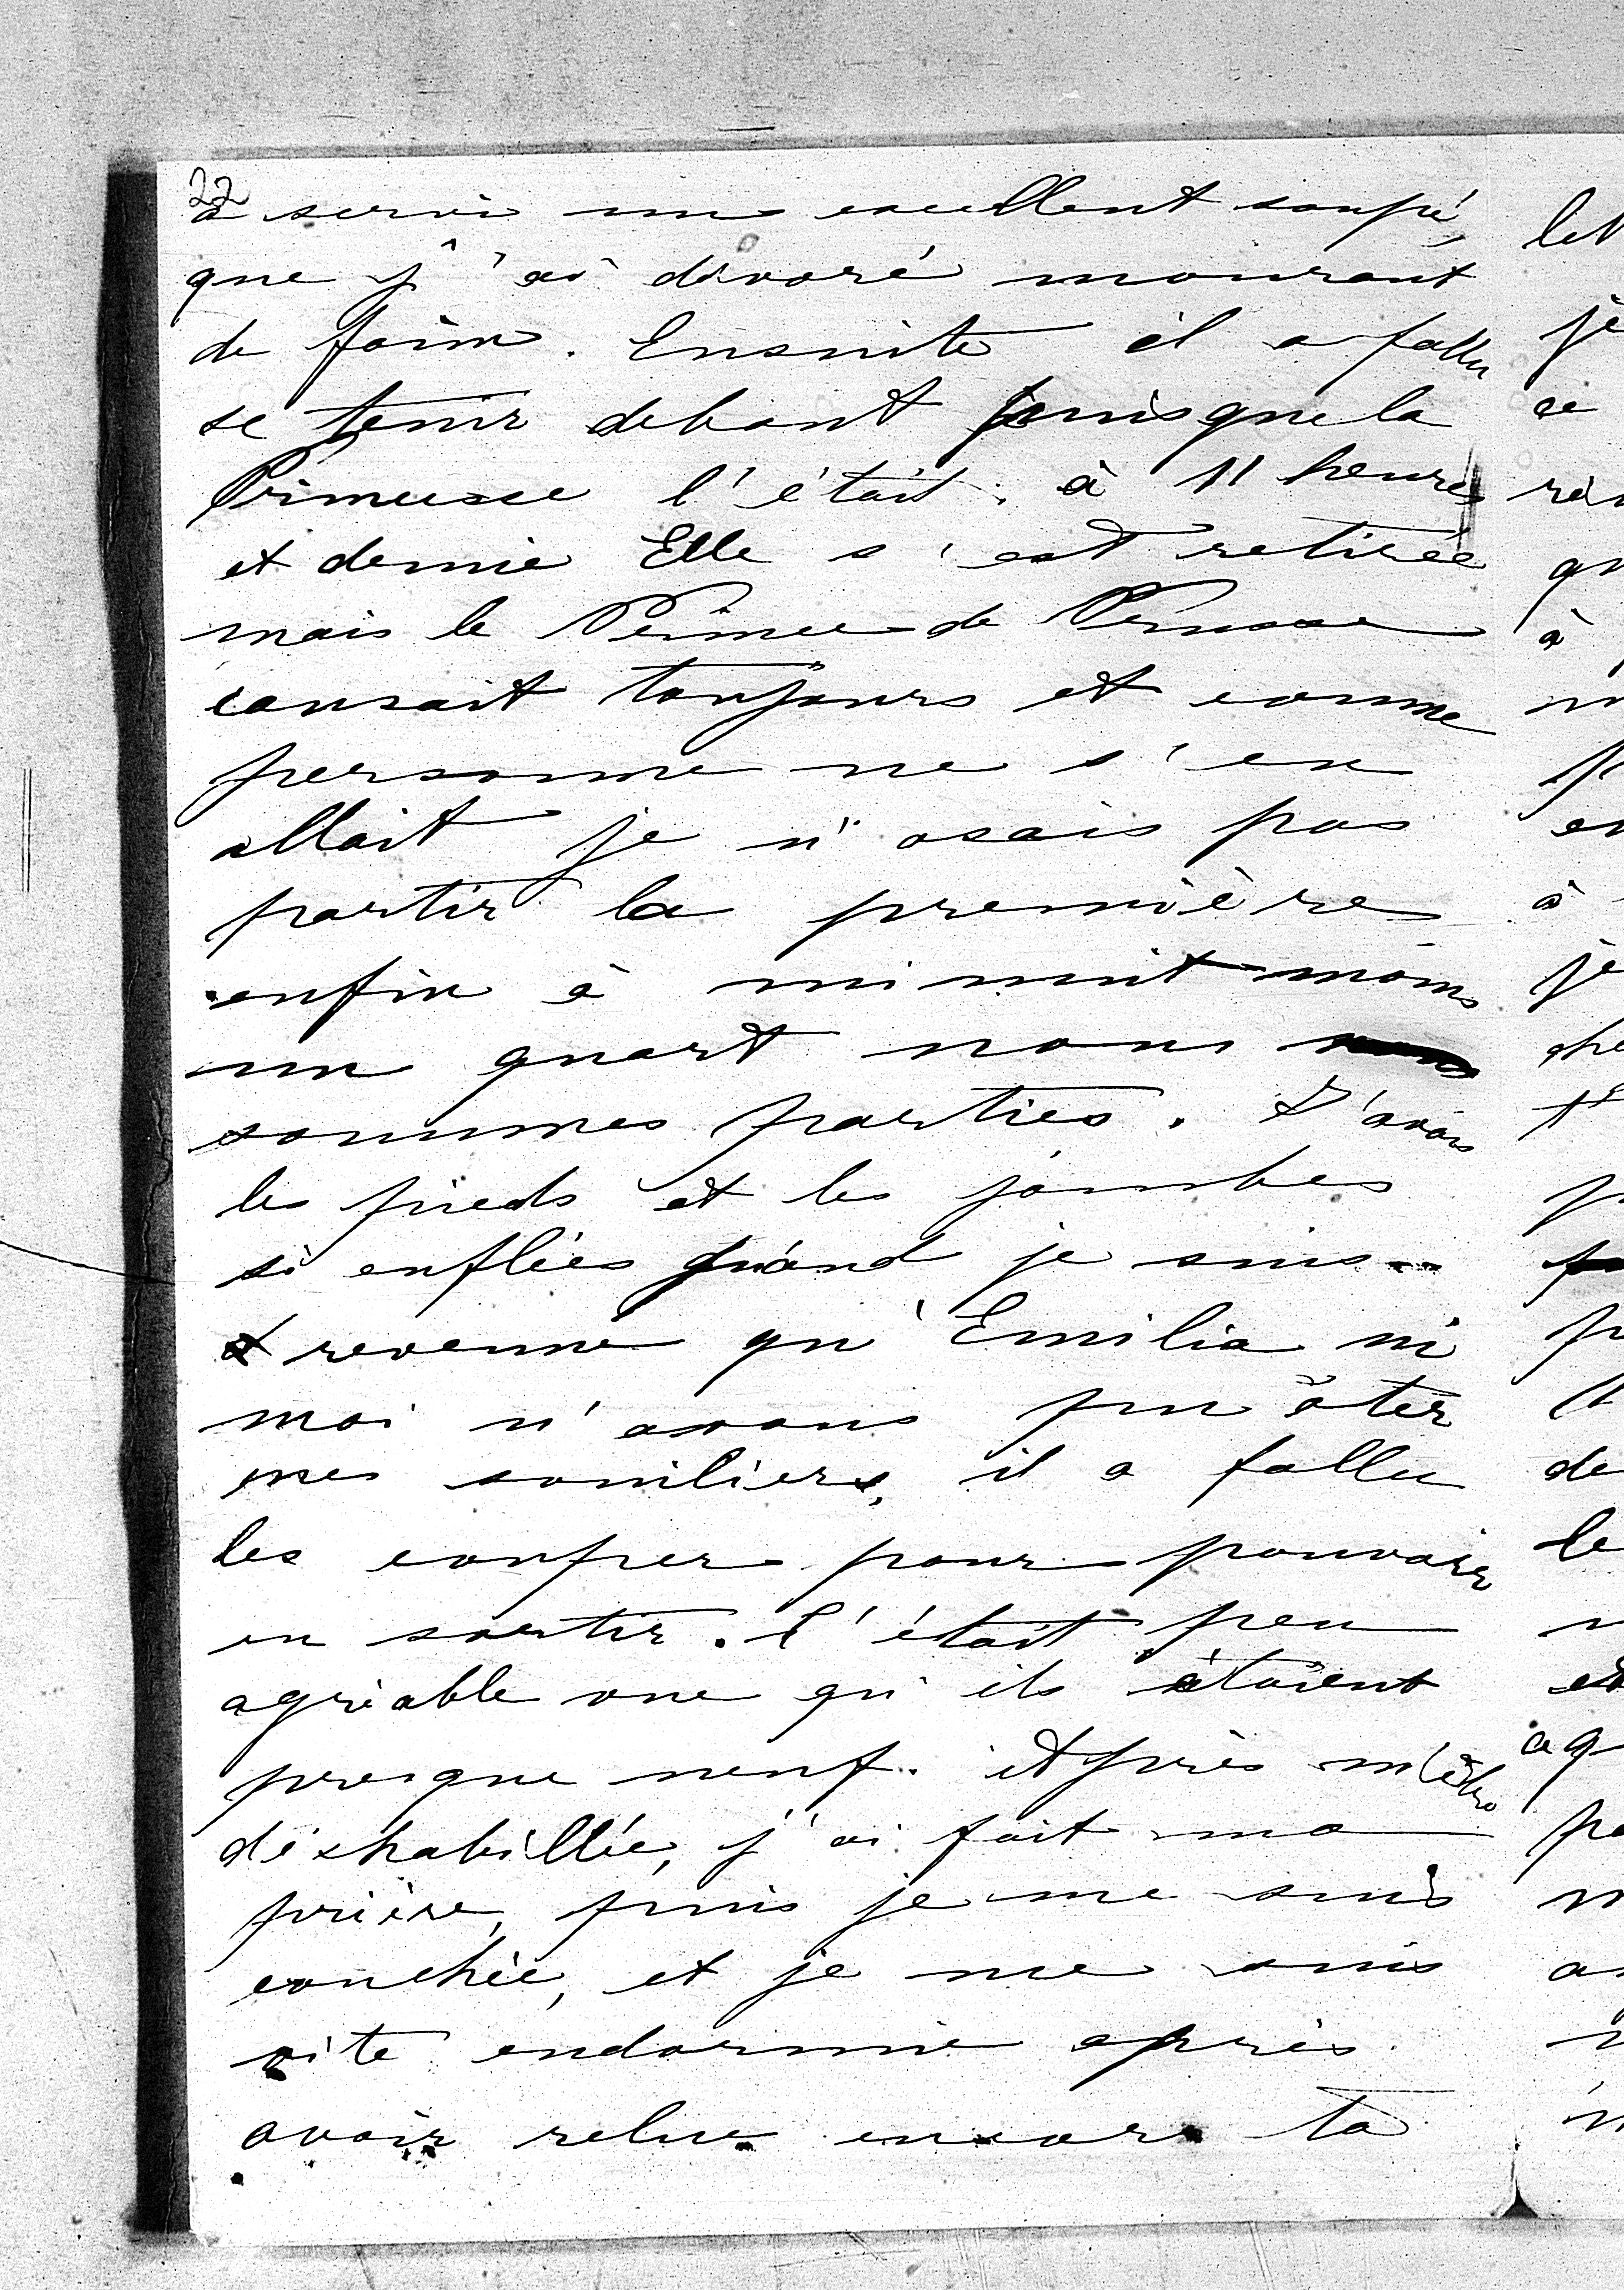 22
a servi un excellent soupé,
que j'ai dévoré mourant
de faim. Ensuite il a fallu
se tenir debout puisque la
Princesse l'était; à 11 heures
et demie Elle s'est retirée
mais le Prince de Prusse
causait toujours et comme
personne ne s'en
allait je n'osais pas
partir la première
enfin à mi nuit moins
un quart nous
sommes parties. J'avais
les pieds et les jambes
si enflées quand je suis
revenue qu'Emilia ni
moi n'avons pu ôter
mes souliers, il a fallu
les couper pour pouvoir
en sortir. C'était peu
agréable vue qu'ils étaient
presque neuf. Après m'être
déshabillée, j'ai fait ma
prière, puis je me suis
couchée, et je me suis
vite endormie après
avoir relue encore ta